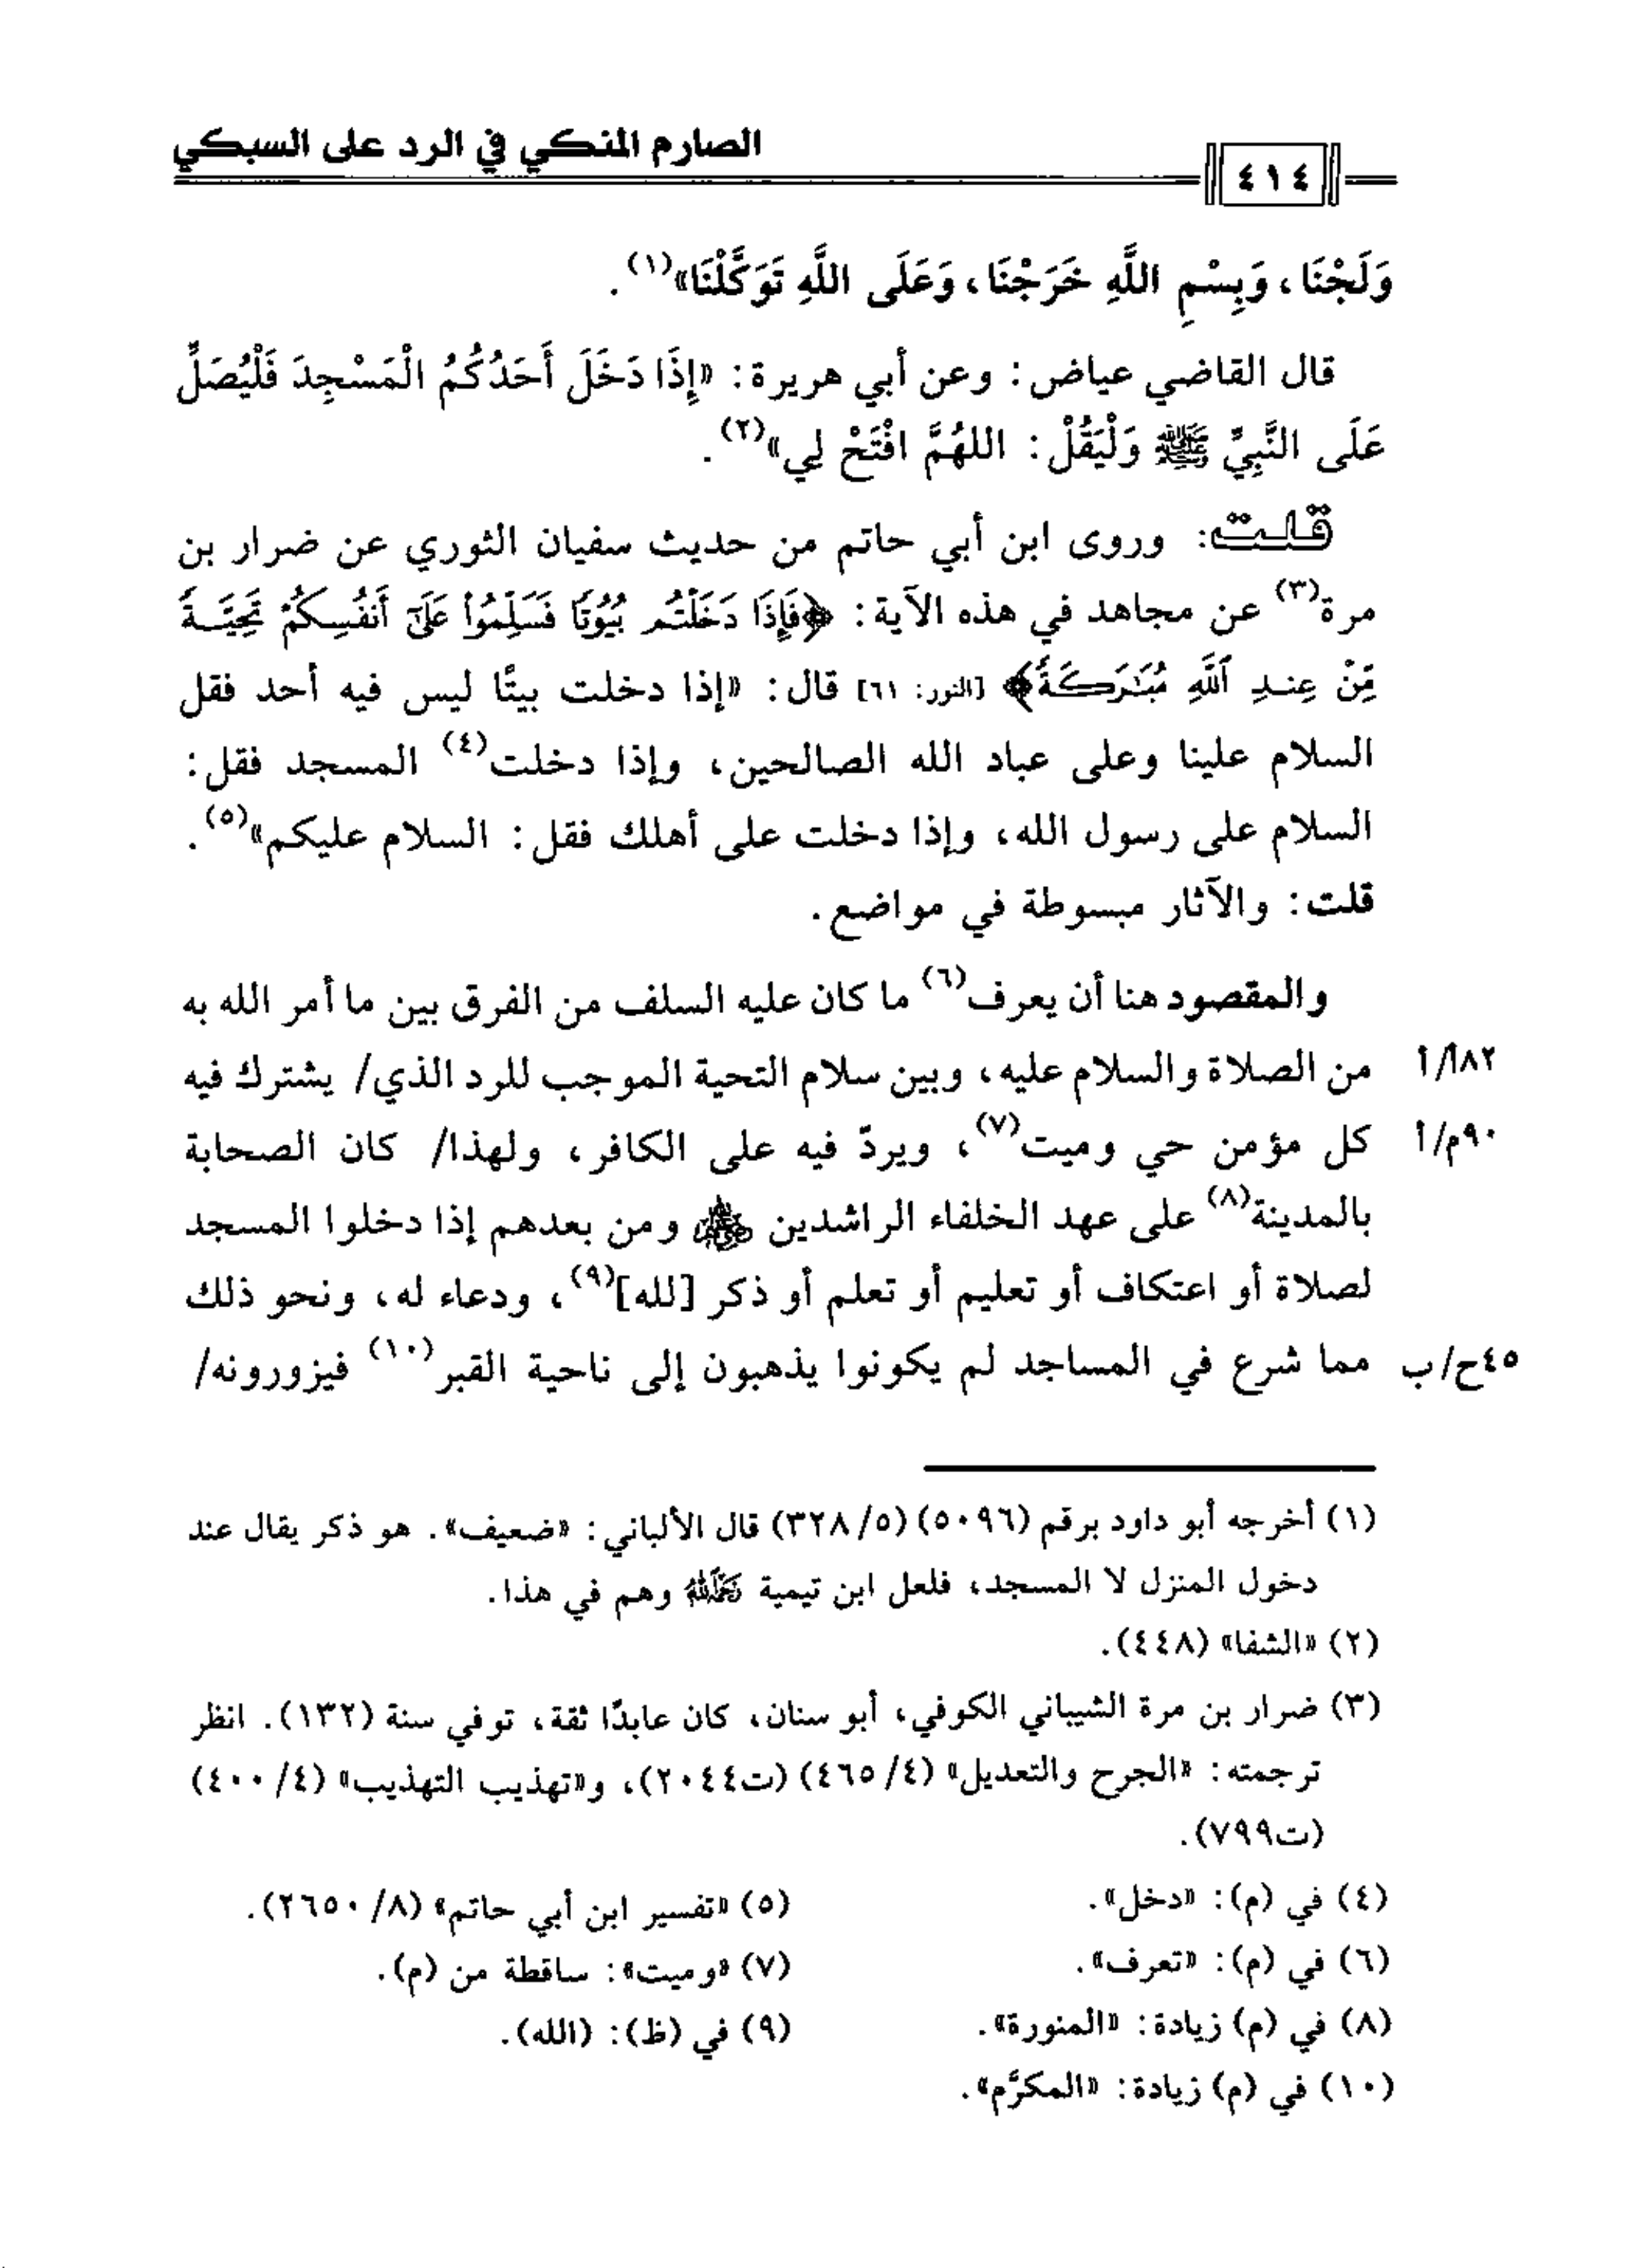 الصارم المنكي في الرد على السبكي
٤١٤
وَلَجْنَا، وَبِسْمِ اللَّهِ خَرَجْنَا، وَعَلَى اللَّهِ تَوَكَّلْنَا»(١).
قال القاضي عياض: وعن أبي هريرة: «إِذَا دَخَلَ أَحَدُكُمُ الْمَسْجِدَ فَلْيُصَلِّ
عَلَى النَّبِيِّ ﷺ وَلْيَقُلْ: اللهُمَّ افْتَحْ لِي»(٢).
قلت: وروى ابن أبي حاتم من حديث سفيان الثوري عن ضرار بن
مرة(٣) عن مجاهد في هذه الآية: ﴿فَإِذَا دَخَلْتُم بُيُوتًا فَسَلِّمُوا۟ عَلَىٰٓ أَنفُسِكُمْ تَحِيَّةً
مِّنْ عِندِ ٱللَّهِ مُبَٰرَكَةً﴾ [النور: ٦١] قال: «إذا دخلت بيتًا ليس فيه أحد فقل
السلام علينا وعلى عباد الله الصالحين، وإذا دخلت(٤) المسجد فقل:
السلام على رسول الله، وإذا دخلت على أهلك فقل: السلام عليكم»(٥).
قلت: والآثار مبسوطة في مواضع.
والمقصود هنا أن يعرف(٦) ما كان عليه السلف من الفرق بين ما أمر الله به
من الصلاة والسلام عليه، وبين سلام التحية الموجب للرد الذي/ يشترك فيه ٨٢أ/أ
كل مؤمن حي وميت(٧)، ويردّ فيه على الكافر، ولهذا/ كان الصحابة ٩٠م/أ
بالمدينة(٨) على عهد الخلفاء الراشدين رضي الله عنهم ومن بعدهم إذا دخلوا المسجد
لصلاة أو اعتكاف أو تعليم أو تعلم أو ذكر [لله](٩)، ودعاء له، ونحو ذلك
مما شرع في المساجد لم يكونوا يذهبون إلى ناحية القبر(١٠) فيزورونه/ ٤٥ح/ب
(١) أخرجه أبو داود برقم (٥٠٩٦) (٣٢٨/٥) قال الألباني: «ضعيف». هو ذكر يقال عند
دخول المنزل لا المسجد، فلعل ابن تيمية رحمه الله وهم في هذا.
(٢) «الشفا» (٤٤٨).
(٣) ضرار بن مرة الشيباني الكوفي، أبو سنان، كان عابدًا ثقة، توفي سنة (١٣٢). انظر
ترجمته: «الجرح والتعديل» (٤٦٥/٤) (ت٢٠٤٤)، و«تهذيب التهذيب» (٤٠٠/٤)
(ت٧٩٩).
(٤) في (م): «دخل».
(٥) «تفسير ابن أبي حاتم» (٢٦٥٠/٨).
(٦) في (م): «تعرف».
(٧) «وميت»: ساقطة من (م).
(٨) في (م) زيادة: «المنورة».
(٩) في (ظ): (الله).
(١٠) في (م) زيادة: «المكرَّم».